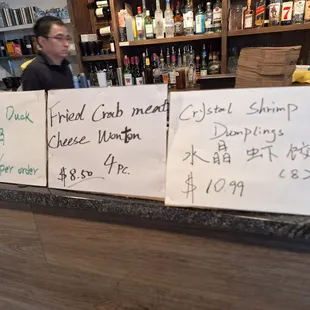 Duck
per order
Fried Crab meat
Cheese Wonton
$8.50 4 PC.
Crystal Shrimp
Dumplings
水晶虾饺
$10.99 (8)